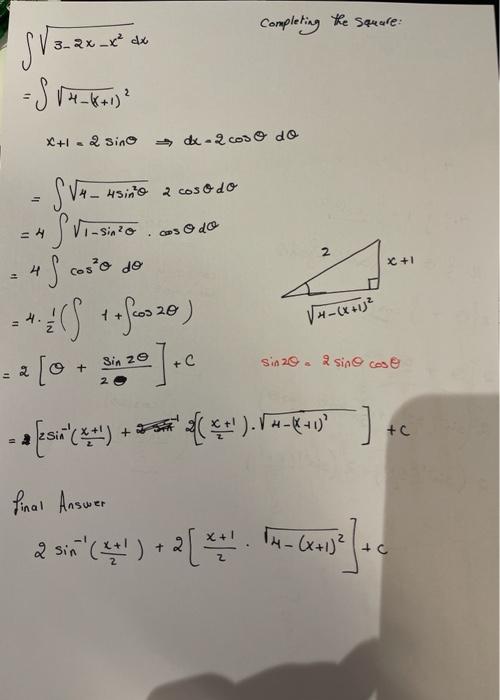 Completing the square:
∫√(3-2x-x² dx
= ∫ √(4-(x+1)²
x+1 = 2 sinθ ⇒ dx = 2 cosθ dθ
= ∫ √(4-4sin²θ) 2 cosθ dθ
= 4 ∫ √(1-sin²θ) . cosθ dθ
= 4 ∫ cos²θ dθ
2
x+1
√(4-(x+1)²
= 4. 1/2 (∫ 1 + ∫cos 2θ)
= 2 [θ + sin 2θ / 2] + C
sin2θ = 2 sinθ cosθ
= [2 sin⁻¹(x+1 / 2) + 2[(x+1 / 2) . √(4-(x+1)²) ] + c
final Answer
2 sin⁻¹(x+1 / 2) + 2[x+1 / 2 . √(4-(x+1)²)] + c